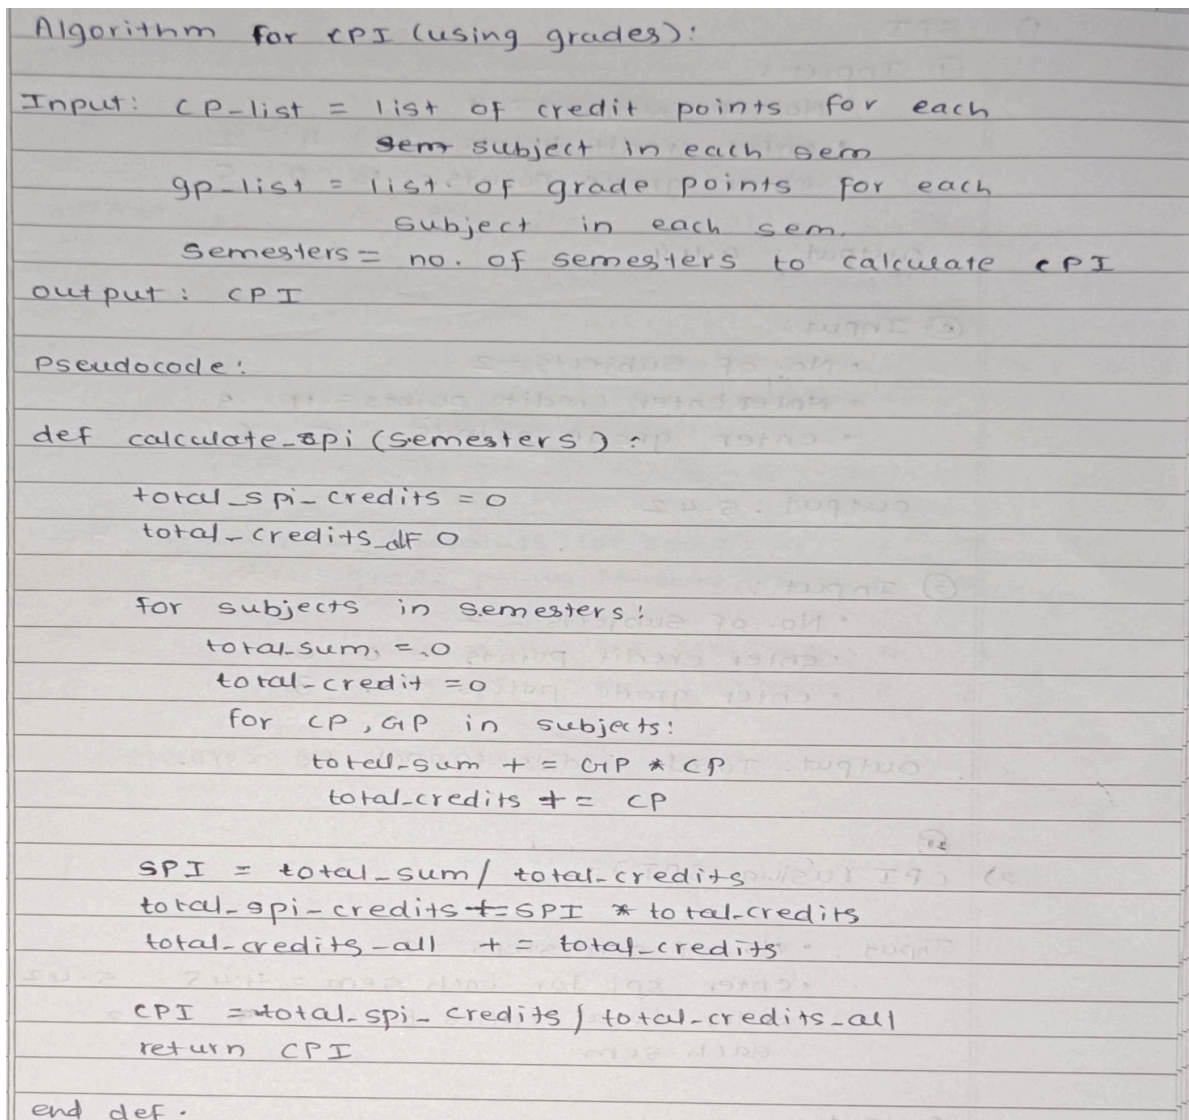 Algorithm for CPI (using grades):
Input: CP_list = list of credit points for each
subject in each sem
gp_list = list of grade points for each
subject in each sem.
Semesters = no. of semesters to calculate CPI
output: CPI
Pseudocode:
def calculate_spi (semesters):
total_spi_credits = 0
total_credits = 0
for subjects in semesters:
total_sum = 0
total_credit = 0
for CP, GP in subjects:
total_sum += GP * CP
total_credits += CP
SPI = total_sum / total_credits
total_spi_credits += SPI * total_credits
total_credits_all += total_credits
CPI = total_spi_credits / total_credits_all
return CPI
end def.